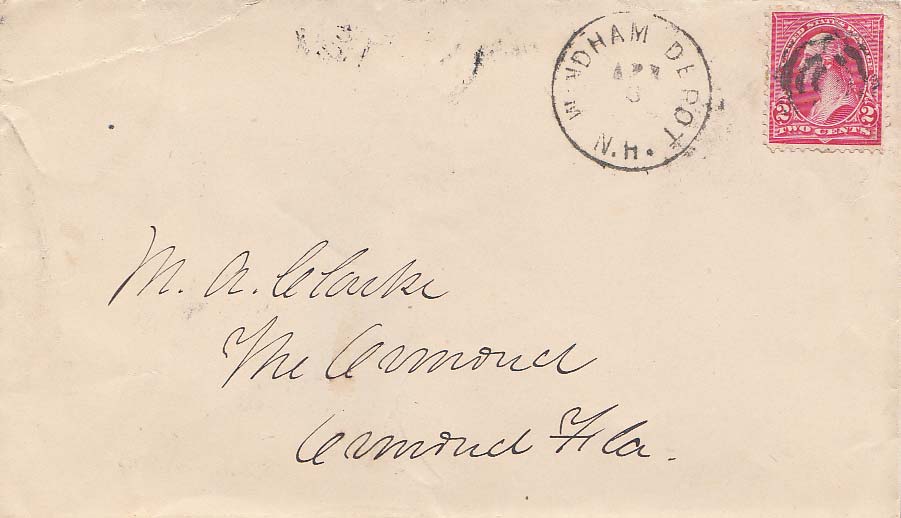 WINDHAM DEPOT
APR
3
N.H.
UNITED STATES POSTAGE
2 2
TWO CENTS
M. A. Clarke
The Ormond
Ormond Fla.